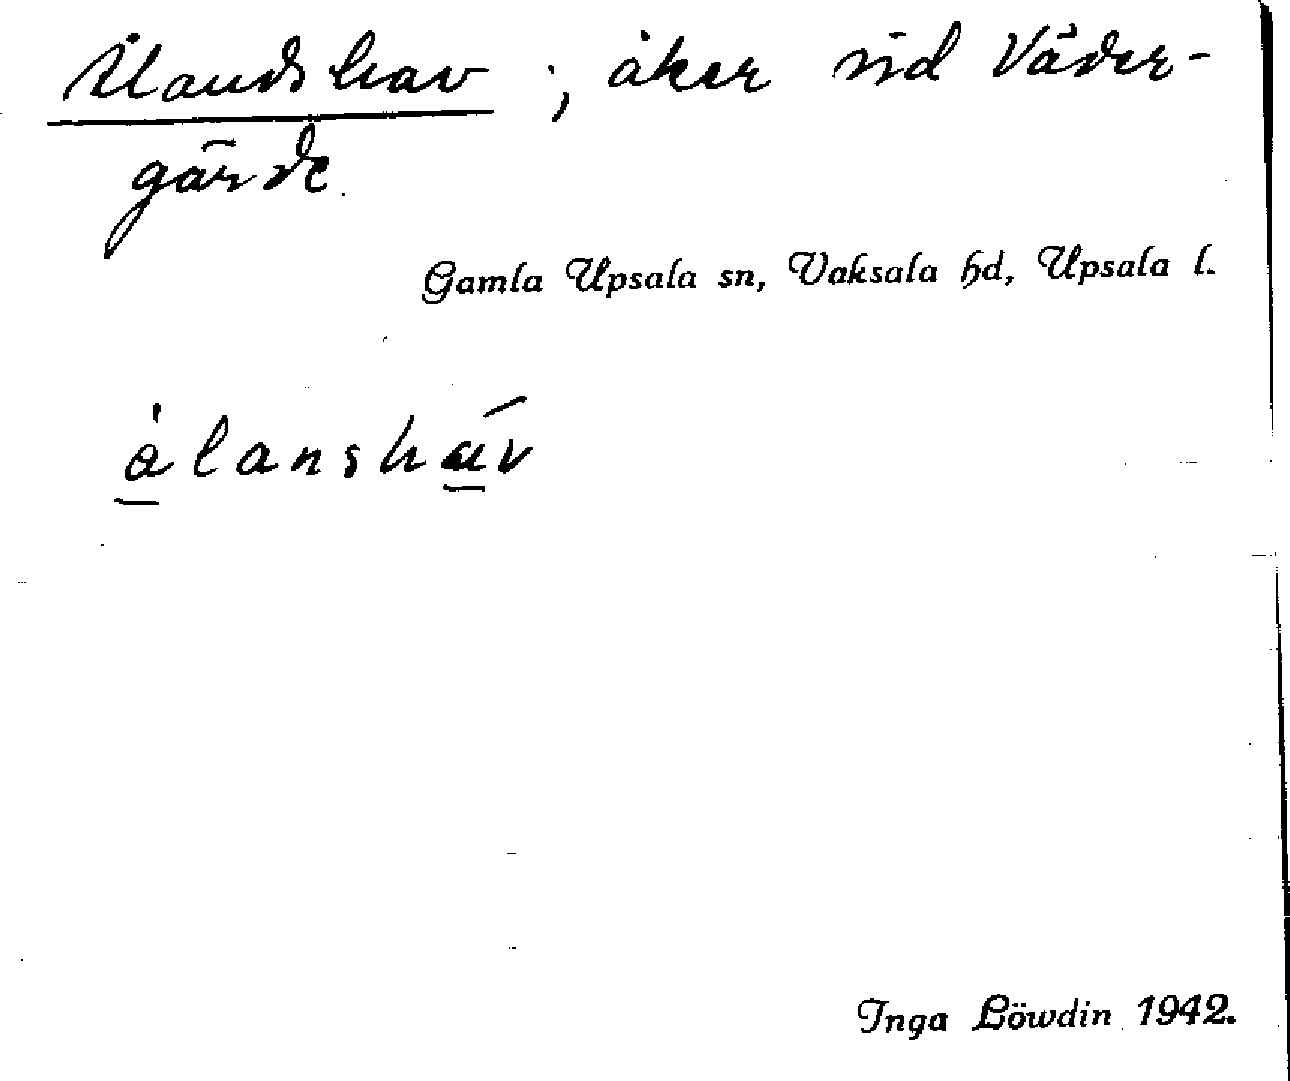 Ålandshav ; åker vid Väder-
gärde.
Gamla Upsala sn, Vaksala hd, Upsala l.
ålansháv
Inga Löwdin 1942.